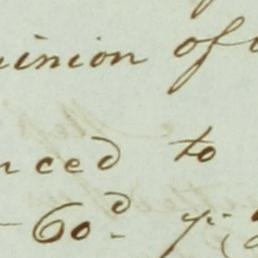 inion of
nced to
60d